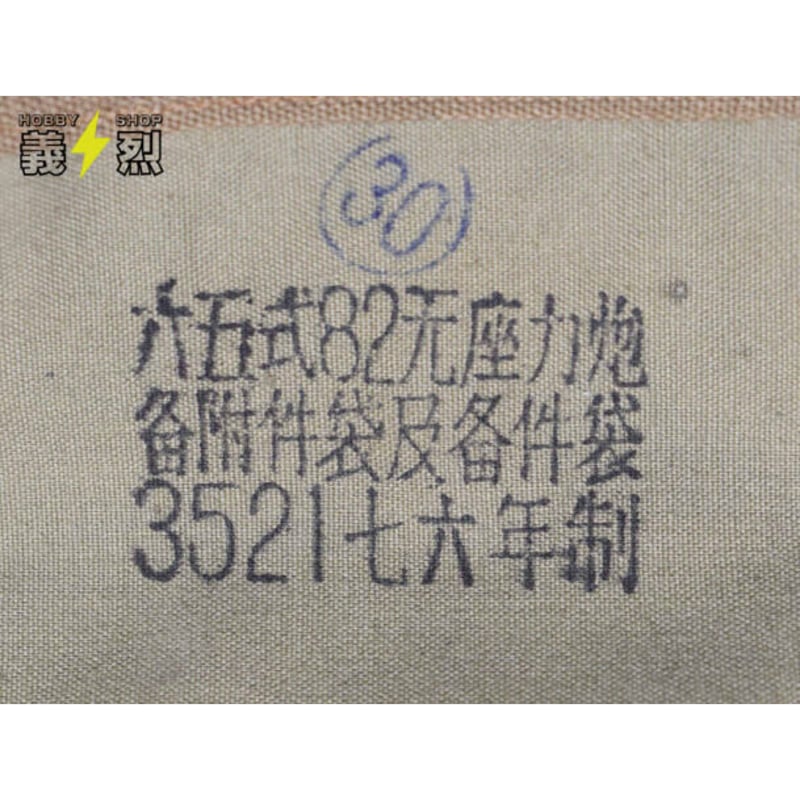 HOBBY SHOP
義烈
(30)
六五式82无座力炮
备附件袋及备件袋
3521七六年制